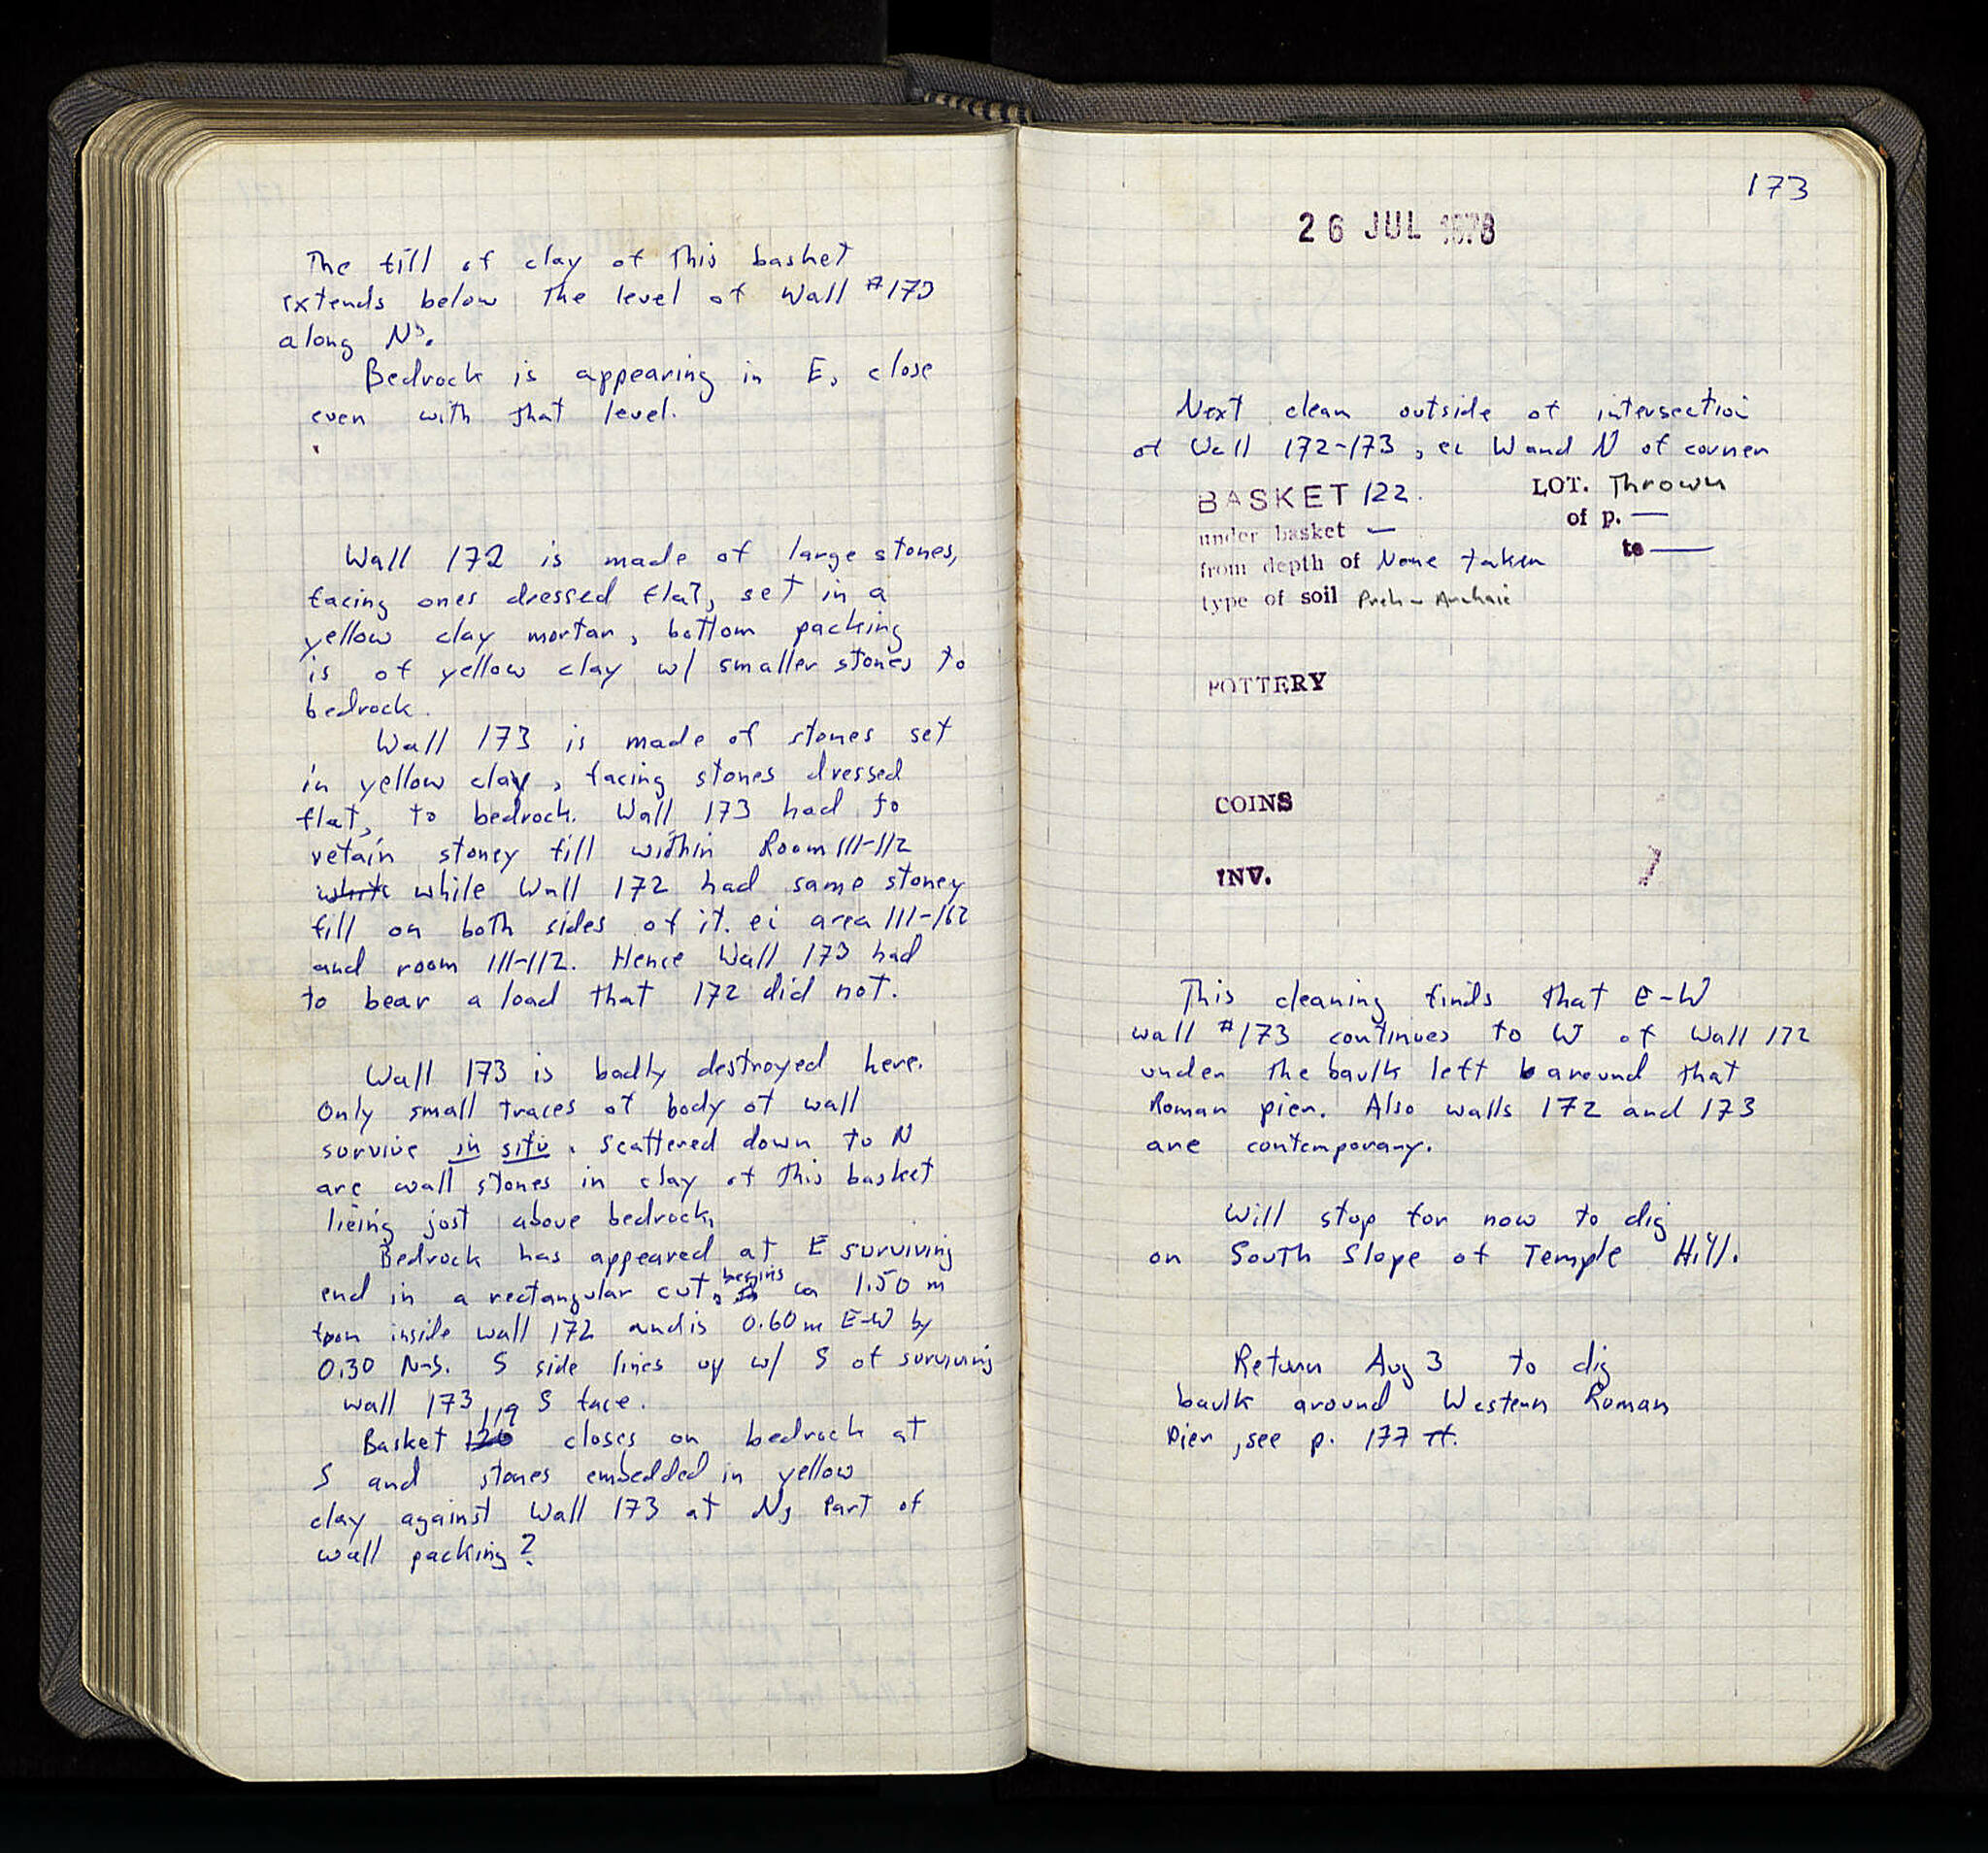 The fill of clay of this basket
extends below the level of Wall #173
along N's.
Bedrock is appearing in E, close
even with that level.
Wall 172 is made of large stones,
facing ones dressed flat, set in a
yellow clay mortar, bottom packing
is of yellow clay w/ smaller stones to
bedrock.
Wall 173 is made of stones set
in yellow clay, facing stones dressed
flat, to bedrock. Wall 173 had to
retain stoney fill within Room 111-112
white while Wall 172 had same stoney
fill on both sides of it. ei area 111-162
and room 111-112. Hence Wall 173 had
to bear a load that 172 did not.
Wall 173 is badly destroyed here.
Only small traces of body of wall
survive in situ. Scattered down to N
are wall stones in clay of this basket
lieing just above bedrock,
Bedrock has appeared at E surviving
end in a rectangular cut, begins ca 1.50 m
inside wall 172 and is 0.60 m E-W by
0.30 N-S. S side lines up w/ S of surviving
wall 173, S face.
Basket 120 119 closes on bedrock at
S and stones embedded in yellow
clay against Wall 173 at N, Part of
wall packing?
173
26 JUL 1978
Next clean outside of intersection
of Wall 172-173, ei W and N of corner
BASKET 122. LOT. Thrown
under basket — of p. —
from depth of None taken to —
type of soil Preh-Archaic
POTTERY
COINS
INV.
This cleaning finds that E-W
wall #173 continues to W of Wall 172
under the baulk left b around that
Roman pier. Also walls 172 and 173
are contemporary.
Will stop for now to dig
on South Slope of Temple Hill.
Return Aug 3 to dig
baulk around Western Roman
Pier, see p. 177 ff.